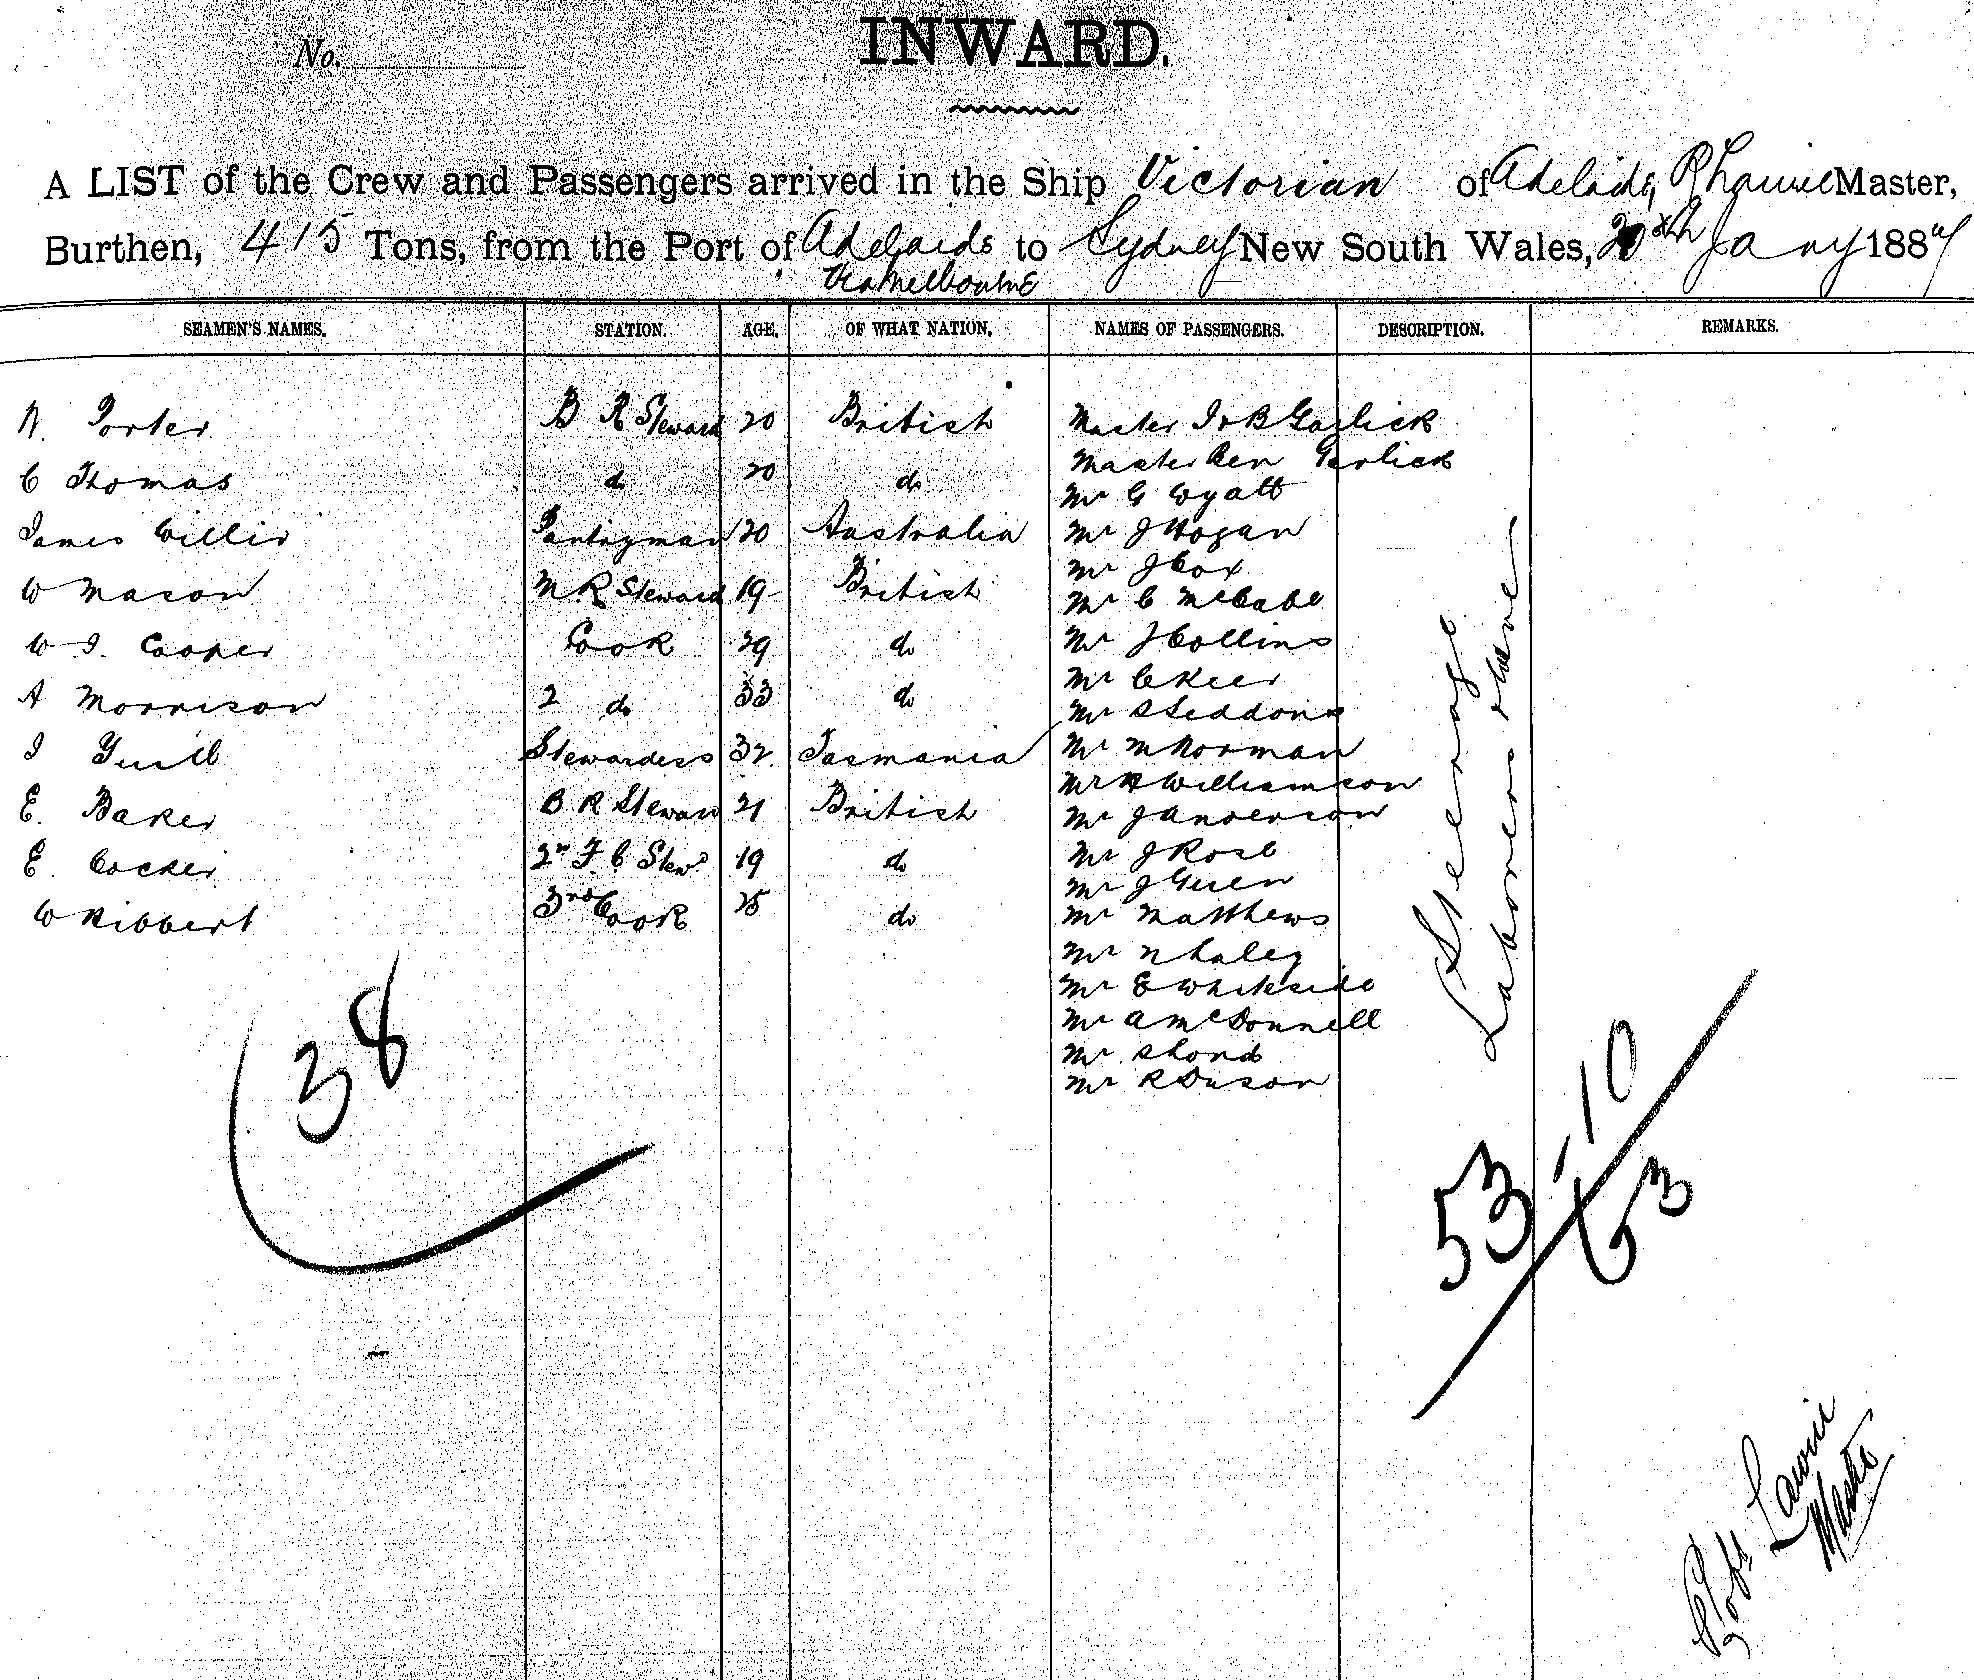 No.
INWARD.
A LIST of the Crew and Passengers arrived in the Ship Victorian of Adelaide, R Lawrie Master,
Burthen, 415 Tons, from the Port of Adelaide to Sydney New South Wales, Jany 1887
Via Melbourne
SEAMEN'S NAMES. STATION. AGE. OF WHAT NATION. NAMES OF PASSENGERS. DESCRIPTION. REMARKS.
Porter B R Steward 20 British Master Garlick
Master Ben Garlick
C Thomas do 20 do Mr G Wyatt
James Willis Pantryman 20 Australia Mr J Hogan
Mr J Cox
W Mason M. R Steward 19 British Mr C McCabe
W J. Cooper Cook 29 do Mr J Collins
Mr C Keer
A Morrison 2 do 33 do Mr S Seddons
Stewardess 32 Tasmania Mr M Norman
Mr H Williamson
E. Baker B R Stewar 21 British Mr J Anderson
E. Cocker 2nd F C Stewd 19 do Mr J Rose
Mr J Green
W Hibbert 3rd Cook 25 do Mr Matthews
Mr
Mr E Whiteside
Mr A McDonnell
Mr S Lond
Mr R Duson
Steerage
Laborers
38
53 10
63
Robt Lawrie
Master